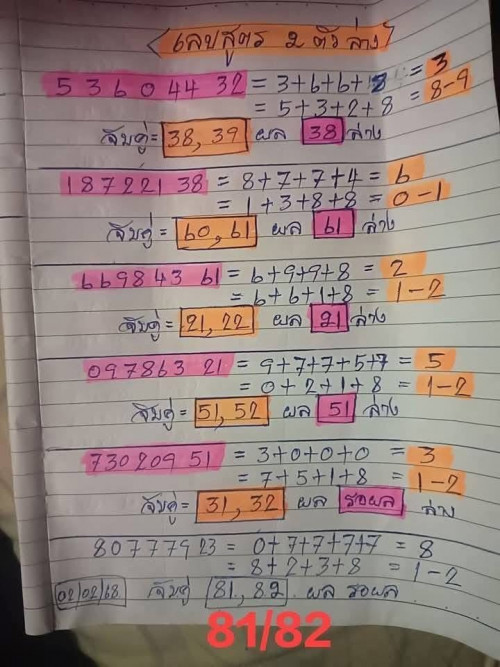 เลขสูตร 2 ตัวล่าง
536044 32 = 3+6+6+8 = 3
= 5+3+2+8 = 8-9
จับคู่ = 38, 39 ผล 38 ล่าง
187221 38 = 8+7+7+4 = 6
= 1+3+8+8 = 0-1
จับคู่ = 60, 61 ผล 61 ล่าง
669843 61 = 6+9+9+8 = 2
= 6+6+1+8 = 1-2
จับคู่ = 21, 22 ผล 21 ล่าง
097863 21 = 9+7+7+5+7 = 5
= 0+2+1+8 = 1-2
จับคู่ = 51, 52 ผล 51 ล่าง
730209 51 = 3+0+0+0 = 3
= 7+5+1+8 = 1-2
จับคู่ = 31, 32 ผล รอผล ล่าง
807779 23 = 0+7+7+7+7 = 8
= 8+2+3+8 = 1-2
02/02/68 จับคู่ 81, 82 ผล รอผล
81/82